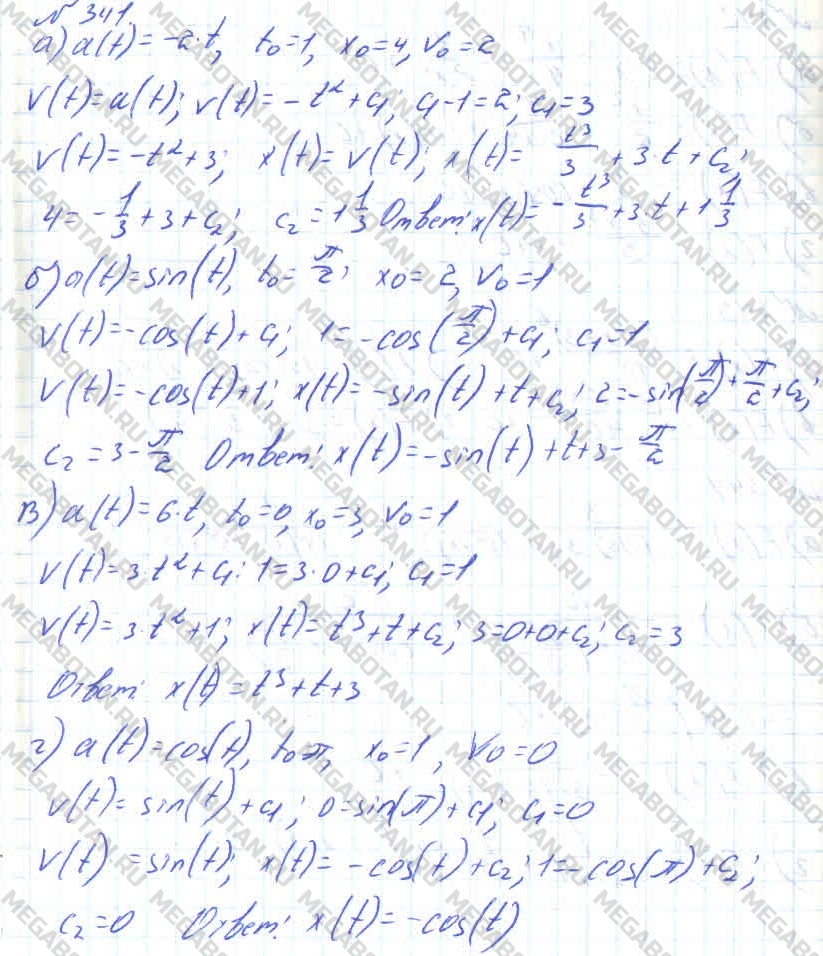 № 341.
а) a(t) = -2·t, t₀=1, x₀=4, v₀=2
v(t)=a(t); v(t)= -t²+c₁; c₁-1=2; c₁=3
v(t)=-t²+3; x(t)=v(t); x(t)= t³/3 + 3·t + c₂;
4=-1/3+3+c₂; c₂=1 1/3 Ответ: x(t)=-t³/3+3·t+1 1/3
б) a(t)=sin(t), t₀=π/2; x₀=2, v₀=1
v(t)=-cos(t)+c₁; 1=-cos(π/2)+c₁; c₁=1
v(t)=-cos(t)+1; x(t)=-sin(t)+t+c₂; 2=-sin(π/2)+π/2+c₂;
c₂=3-π/2 Ответ: x(t)=-sin(t)+t+3-π/2
в) a(t)=6·t, t₀=0, x₀=3, v₀=1
v(t)=3·t²+c₁: 1=3·0+c₁; c₁=1
v(t)=3·t²+1; x(t)=t³+t+c₂; 3=0+0+c₂; c₂=3
Ответ: x(t)=t³+t+3
г) a(t)=cos(t), t₀=π, x₀=1, v₀=0
v(t)=sin(t)+c₁; 0=sin(π)+c₁; c₁=0
v(t)=sin(t); x(t)=-cos(t)+c₂; 1=-cos(π)+c₂;
c₂=0 Ответ: x(t)=-cos(t)
MEGABOTAN.RU